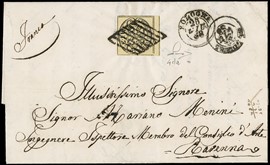 Franca
BOLOGNA
Illustrissimo Signore
Signor Mariano Menini
Ingegnere Ispettore Membro del Consiglio d'Arte
Ravenna